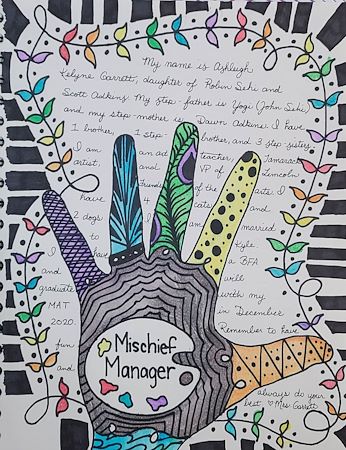 My name is Ashleigh
Kelyne Garrett, daughter of Robin Sehi and
Scott Adkins. My step-father is Yogi (John Sehi)
and my step-mother is Dawn Adkins. I have
1 brother, 1 step- brother, and 3 step-sisters.
I am an art teacher, Tamarack
artist, and VP of Lincoln
Friends of the arts. I
have 4 cats, and
2 dogs I am married
to Kyle.
I have a BFA
and will
graduate with my
MAT in December
2020. Remember to have
fun
and always do your
best ♡ Mrs. Garrett
Mischief
Manager